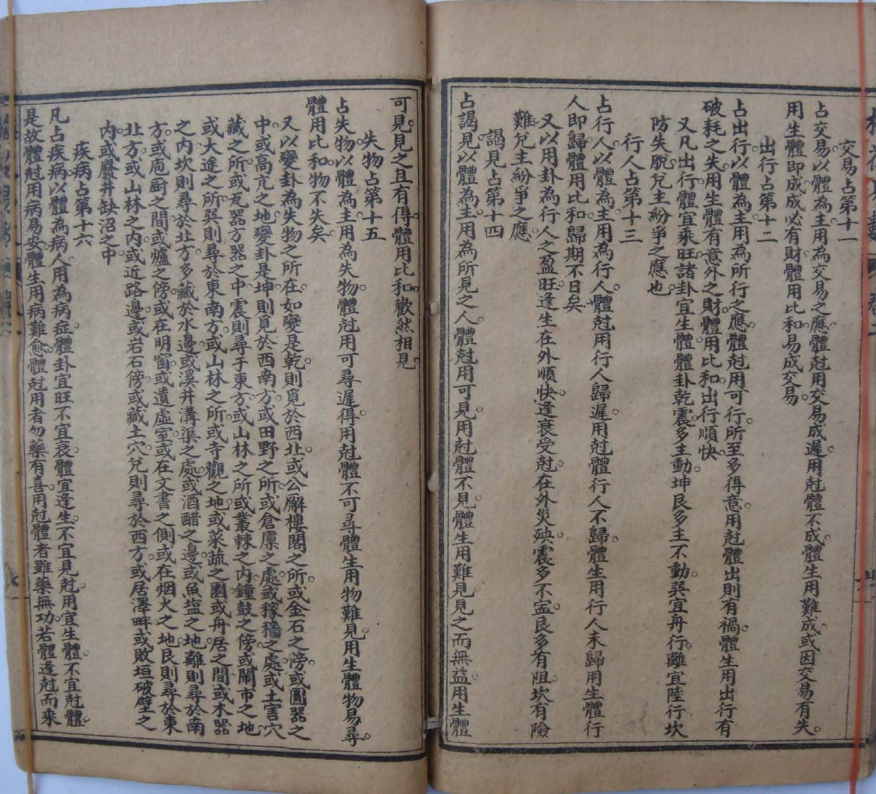 交易占第十一
占交易以體為主用為交易之應體尅用交易成遲用尅體不成體生用難成或因交易有失
用生體即成成必有財體用比和易成交易
出行占第十二
占出行以體為主用為所行之應體尅用可行所至多得意用尅體出則有禍體生用出行有
破耗之失用生體有意外之財體用比和出行順快
又凡出行體宜乘旺諸卦宜生體體卦乾震多主動坤艮多主不動巽宜舟行離宜陸行坎
防失脫兌主紛爭之應也
行人占第十三
占行人以體為主用為行人體尅用行人歸遲用尅體行人不歸體生用行人未歸用生體行
人即歸體用比和歸期不日矣
又以用卦為行人之盈旺逢生在外順快逢衰受尅在外災殃震多不寍艮多有阻坎有險
難兌主紛爭之應
謁見占第十四
占謁見以體為主用為所見之人體尅用可見用尅體不見體生用難見見之而無益用生體
可見見之且有得體用比和歡然相見
失物占第十五
占失物以體為主用為失物體尅用可尋遲得用尅體不可尋體生用物難見用生體物易尋
體用比和物不失矣
又以變卦為失物之所在如變是乾則覓於西北或公廨樓閣之所或金石之傍或圓器之
中或高亢之地變卦是坤則覓於西南方或田野之所或倉廩之處或稼穡之處或土窖穴
藏之所或瓦器方器之中震則尋于東方或山林之所或叢棘之內鐘鼓之傍或鬧市之地
或大途之所巽則尋於東南方或山林之所或寺觀之地或菜蔬之園或舟居之間或木器
之內坎則尋於北方多藏於水邊或溪井溝渠之處或酒醋之邊或魚盐之地離則尋於南
方或庖廚之間或爐之傍或在明窗或遺虛室或在文書之側或在烟火之地艮則尋於東
北方或山林之內或近路邊或岩石傍或藏土穴兌則尋於西方或居澤畔或敗垣破壁之
內或廢井缺沼之中
疾病占第十六
凡占疾病以體為病人用為病症體卦宜旺不宜衰體宜逢生不宜見尅用宜生體不宜尅體
是故體尅用病易安體生用病難愈體尅用者勿藥有喜用尅體者雖藥無功若體逢尅而來